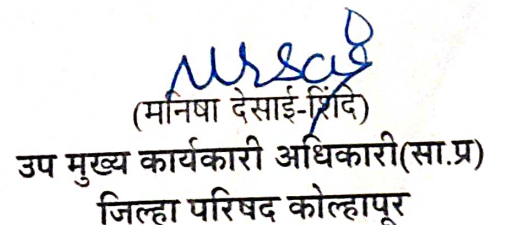 (मनिषा देसाई-शिंदे)
उप मुख्य कार्यकारी अधिकारी(सा.प्र)
जिल्हा परिषद कोल्हापूर